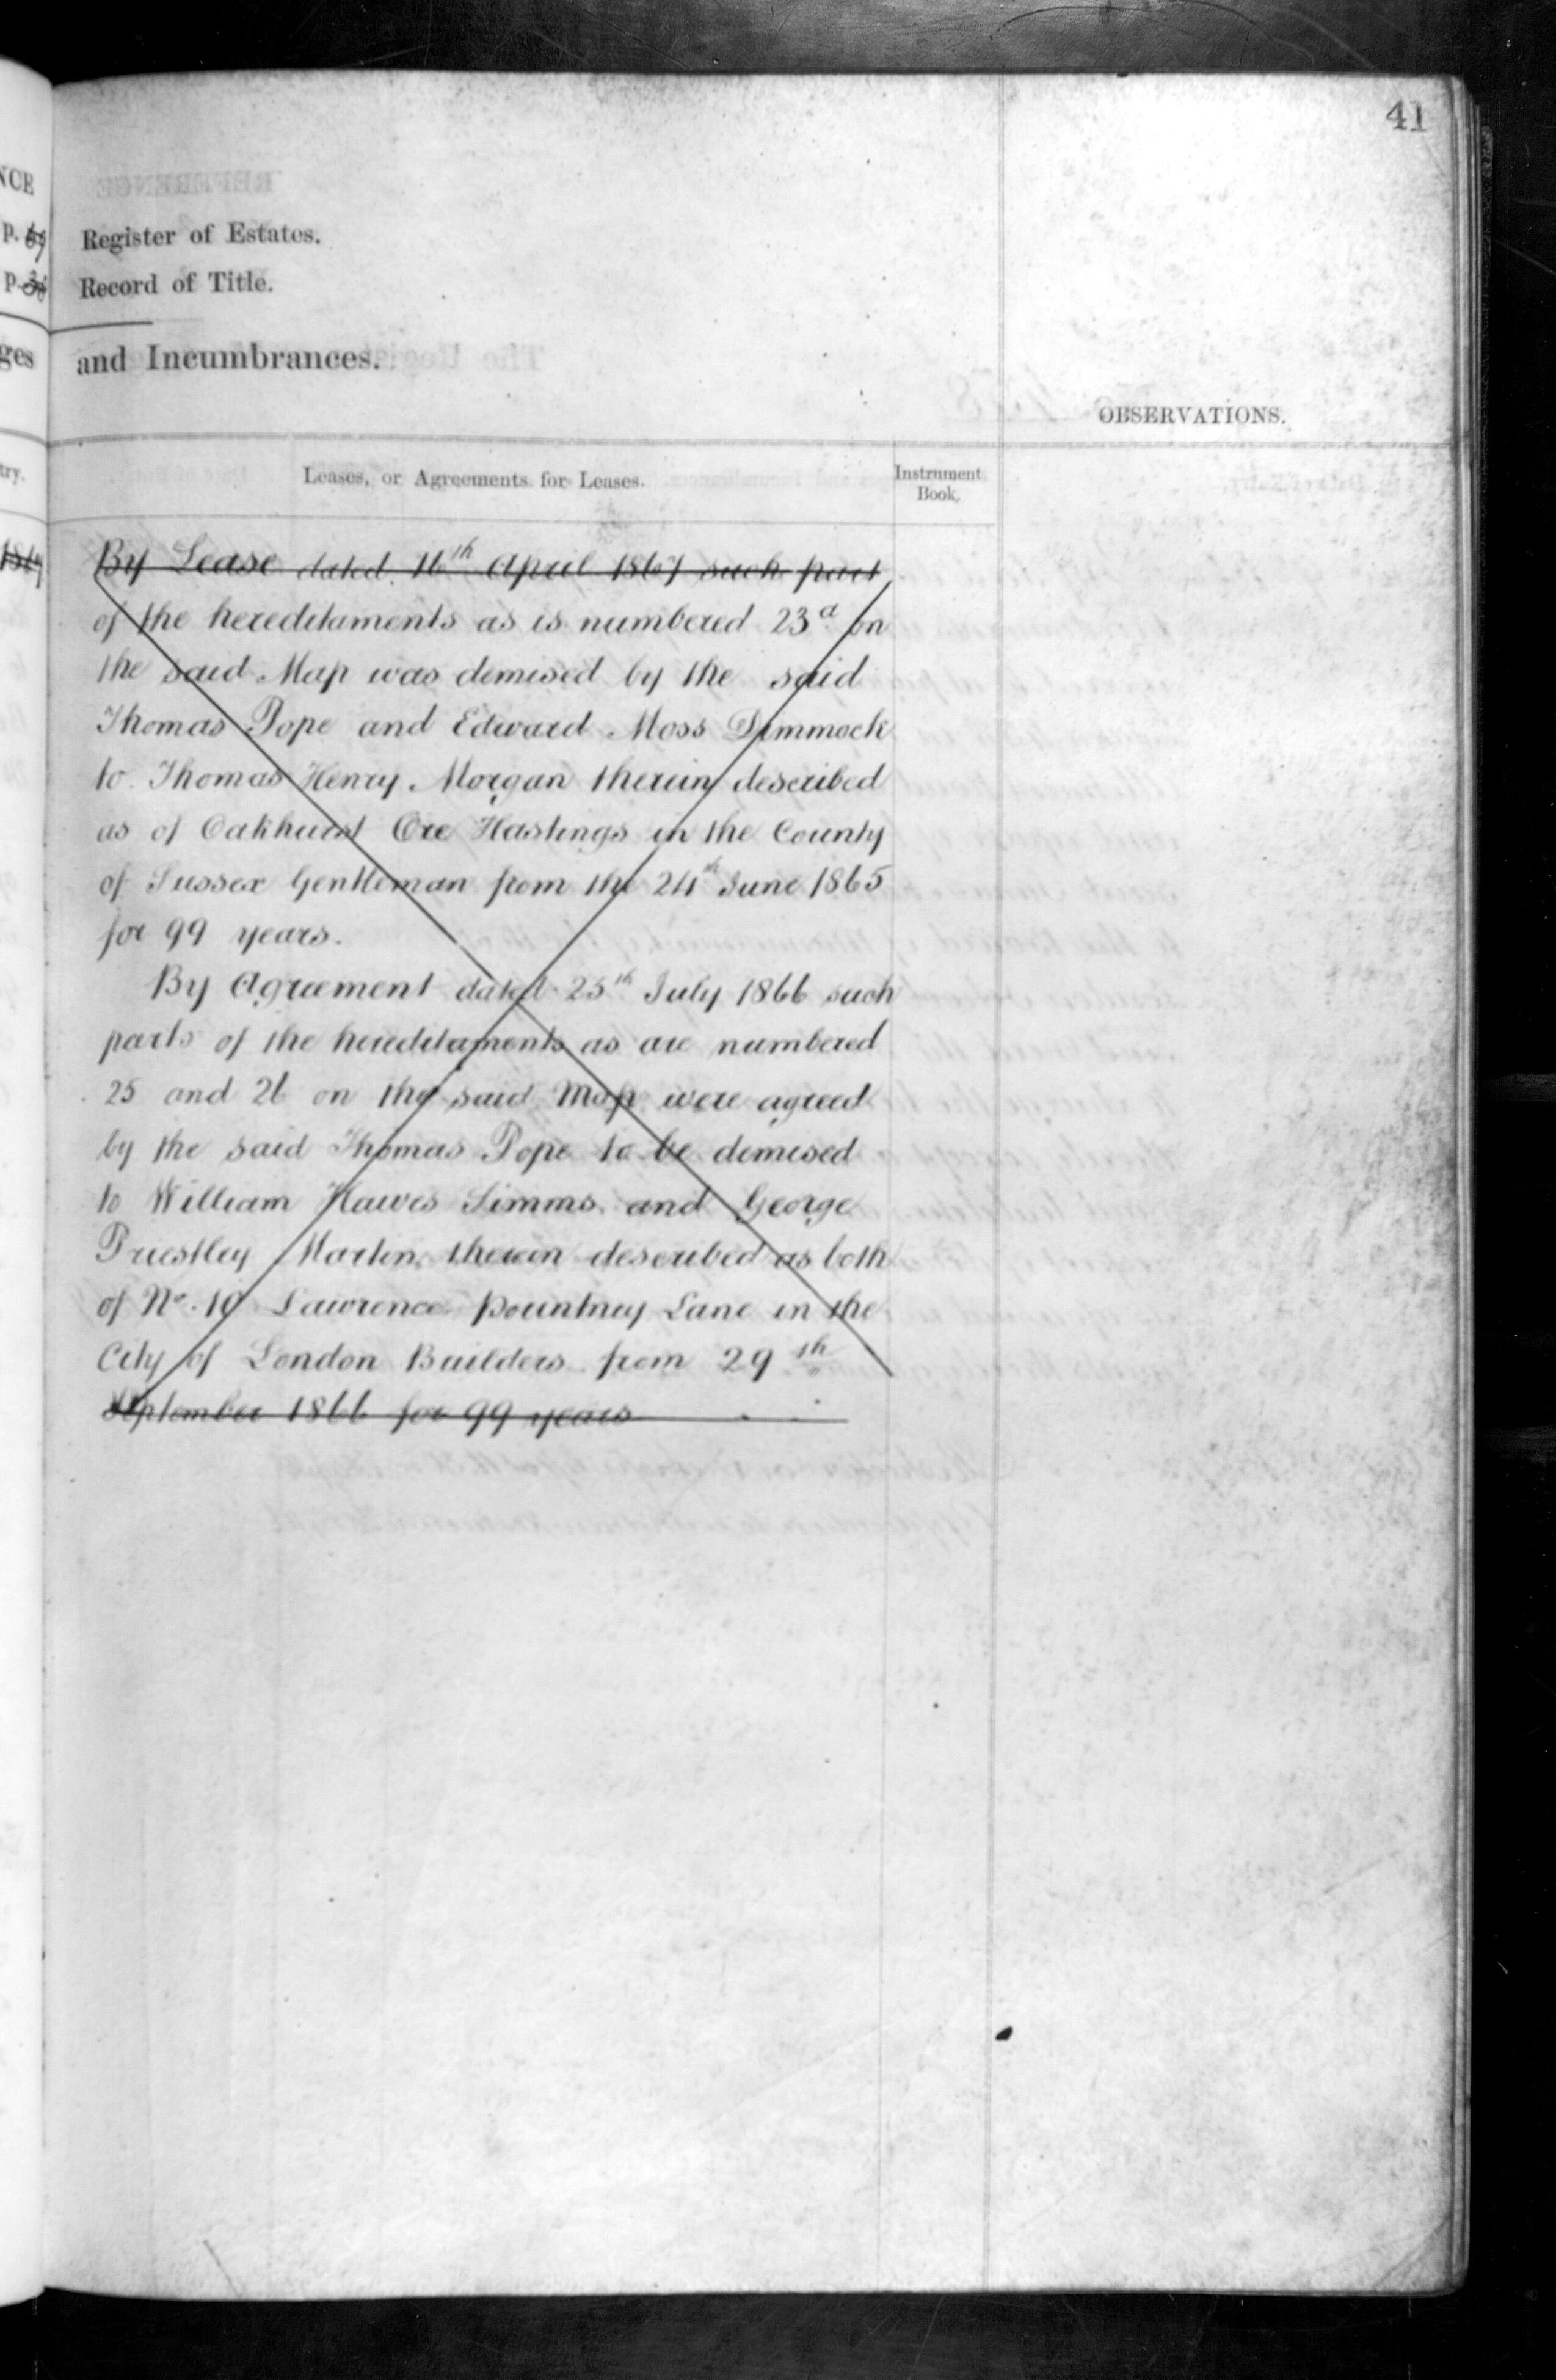 41
NCE
p.
Register of Estates.
p.
Record of Title.
ges
and Incumbrances.
OBSERVATIONS.
try.
Leases, or Agreements for Leases.
Instrument
Book.
By Lease dated 16th April 1867 such part
of the hereditaments as is numbered 23a on
the said Map was demised by the said
Thomas Pope and Edward Moss Dimmock
to Thomas Henry Morgan therein described
as of Oakhurst Ore Hastings in the County
of Sussex Gentleman from the 24th June 1865
for 99 years.
By Agreement dated 25th July 1866 such
parts of the hereditaments as are numbered
25 and 26 on the said Map were agreed
by the said Thomas Pope to be demised
to William Hawes Simms and George
Priestley Martin therein described as both
of No. 10 Lawrence Pountney Lane in the
City of London Builders from 29th
September 1866 for 99 years